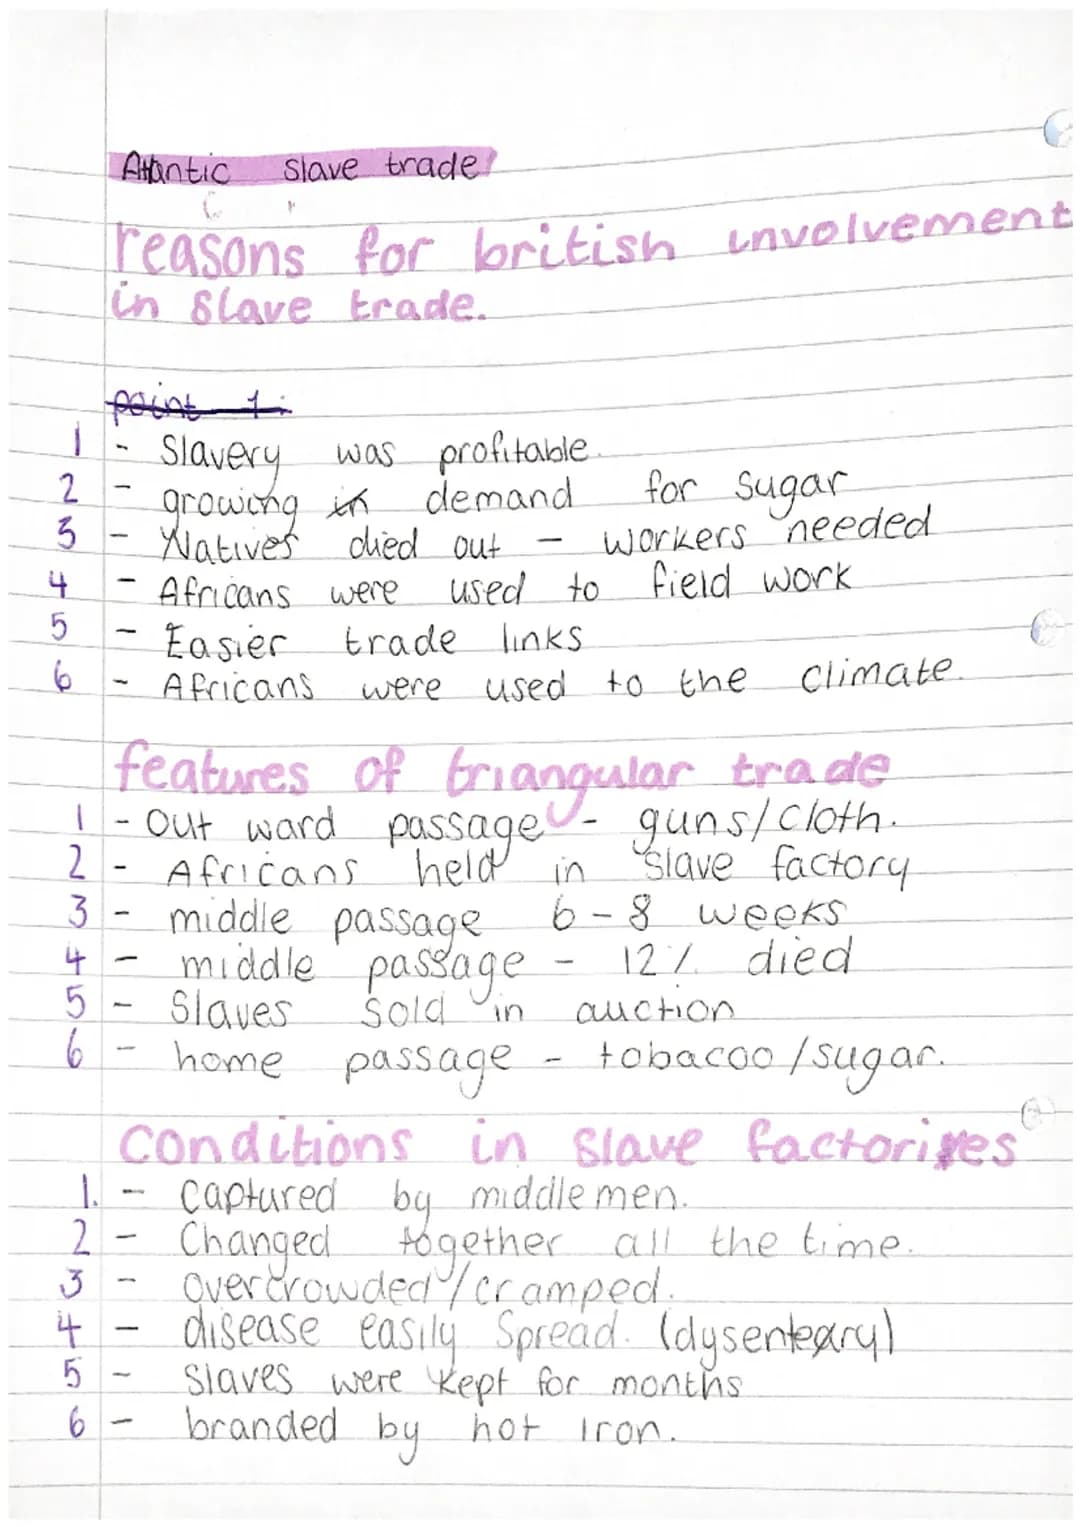 Atlantic slave trade
reasons for british involvement
in slave trade.
point 1:
1 - Slavery was profitable.
2 - growing in demand for sugar
3 - Natives died out - workers needed
4 - Africans were used to field work
5 - Easier trade links
6 - Africans were used to the climate.
features of triangular trade
1 - Out ward passage - guns/cloth.
2 - Africans held in slave factory
3 - middle passage 6-8 weeks
4 - middle passage - 12% died
5 - Slaves sold in auction
6 - home passage - tobacoo/sugar.
Conditions in slave factories
1. - captured by middle men.
2 - Changed together all the time.
3 - overcrowded/cramped.
4 - disease easily spread. (dysenteary)
5 - Slaves were kept for months
6 - branded by hot iron.